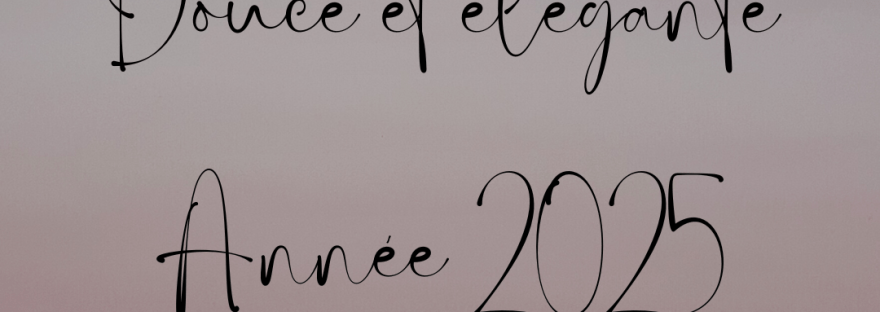 Douce et élégante
Année 2025